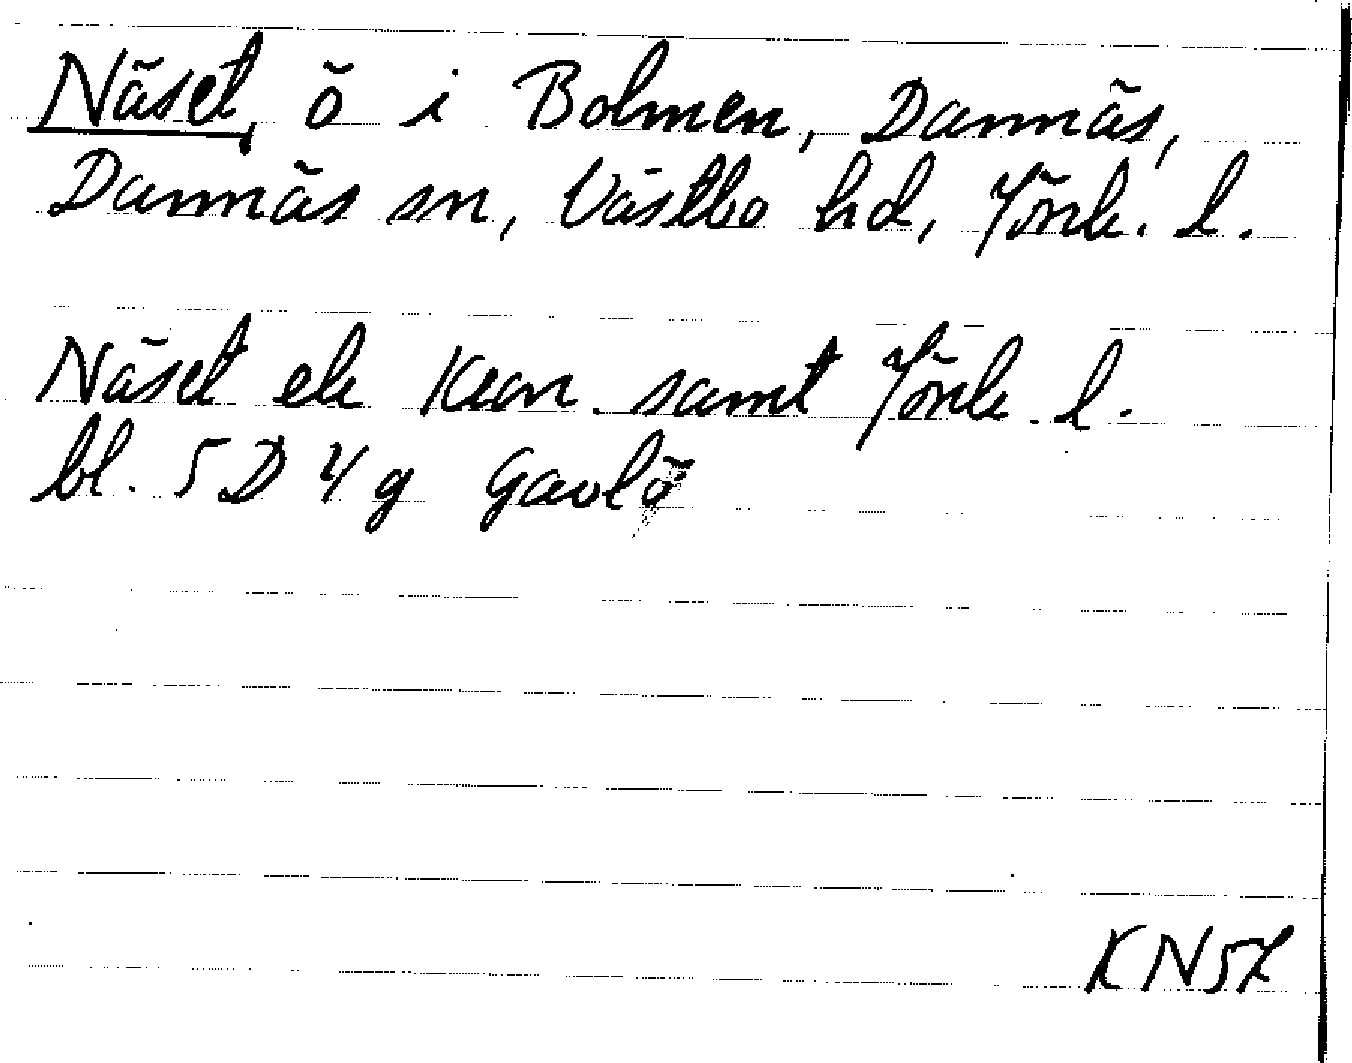 Näset, ö i Bolmen, Dannäs,
Dannäs sn, Västbo hd, Jönk. l.
Näset ek Kron. samt Jönk. l.
bl. 5D 4g Gavlö
KN57